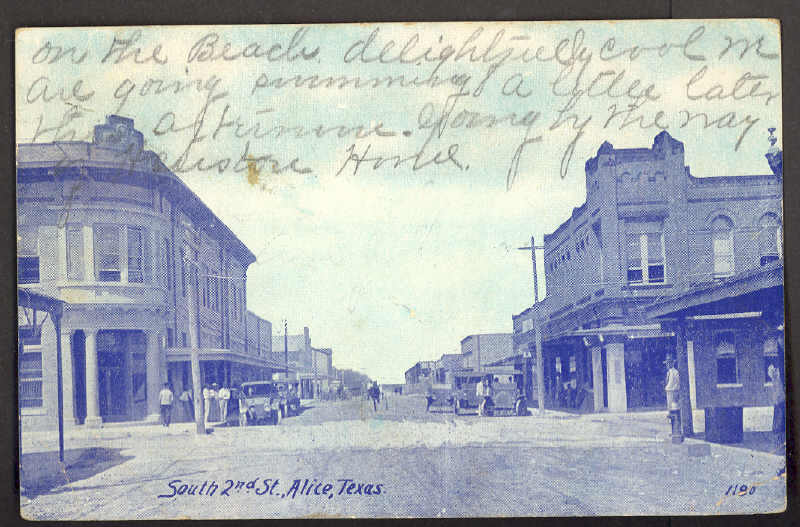 on the Beach. delightfully cool We
are going swimming a little later
this afternoon. Going by the way
of Houston Home.
South 2nd St., Alice, Texas.
1190